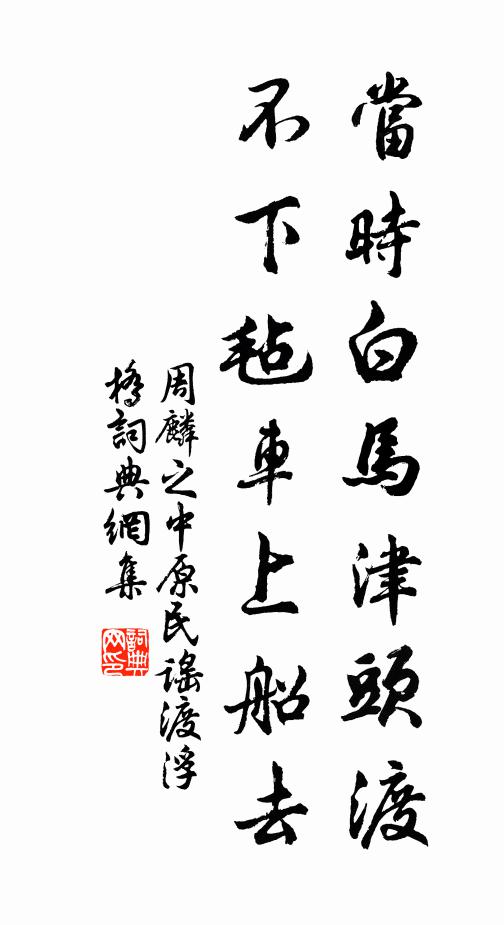 當時白馬津頭渡
不下毡車上船去
周麟之中原民謠渡浮
橋詞典網集
詞典网印